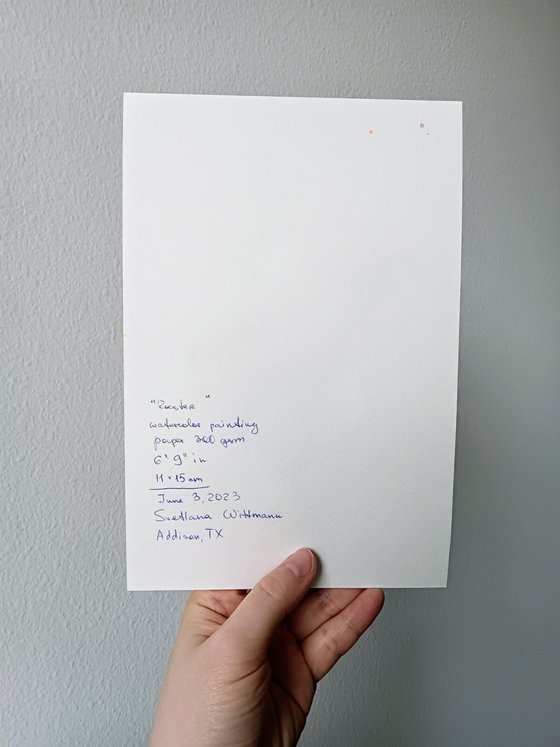 "Rooster"
watercolor painting
paper 300 gsm
6" 9" in
11 x 15 cm
June 3, 2023
Svetlana Wittmann
Addison, TX